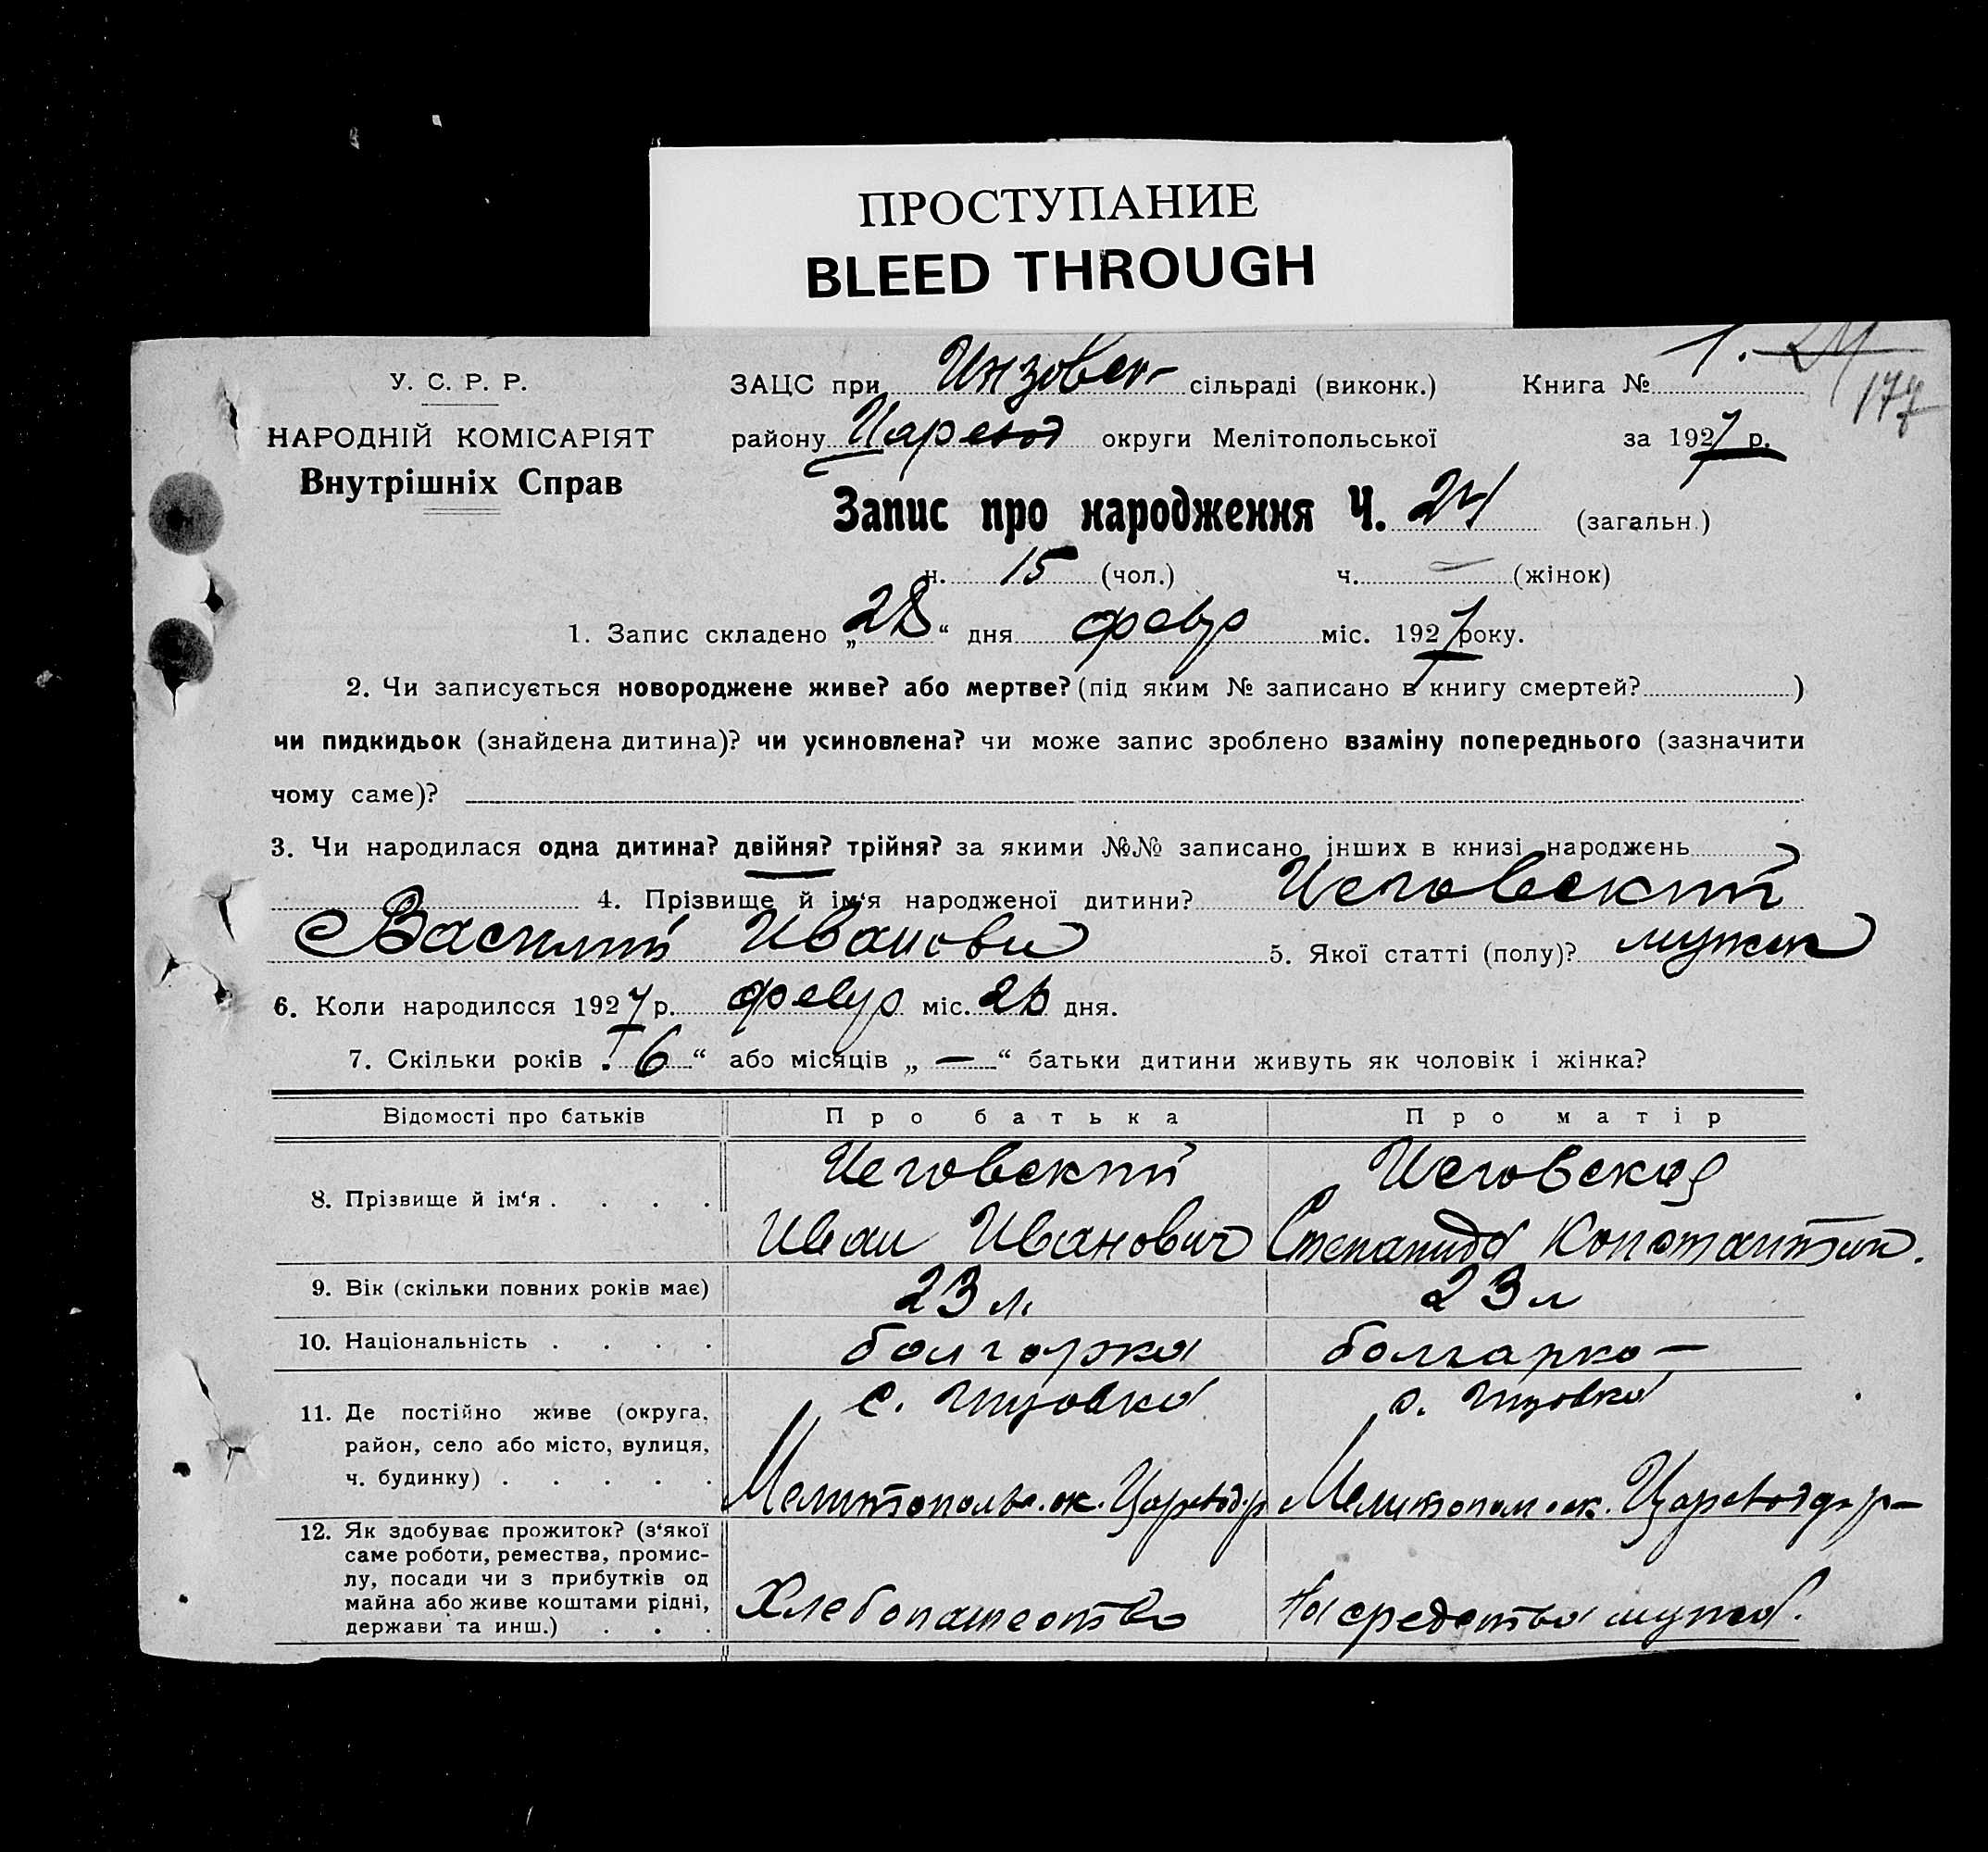 ПРОСТУПАНИЕ
BLEED THROUGH
У. С. Р. Р.
НАРОДНІЙ КОМІСАРІЯТ
Внутрішніх Справ
ЗАЦС при Инзовск сільраді (виконк.) Книга № 1. 24
177
району Царевод округи Мелітопольської за 1927 р.
Запис про народження Ч. 24 (загальн.)
ч. 15 (чол.) ч. — (жінок)
1. Запис складено „28“ дня февр міс. 1927 року.
2. Чи записується новороджене живе? або мертве? (під яким № записано в книгу смертей? )
чи пидкидьок (знайдена дитина)? чи усиновлена? чи може запис зроблено взаміну попереднього (зазначити
чому саме)?
3. Чи народилася одна дитина? двійня? трійня? за якими №№ записано інших в книзі народжень
4. Прізвище й ім‘я народженої дитини?
Василий Иванови 5. Якої статті (полу)? мужск
6. Коли народилося 1927 р. февр міс. дня.
7. Скільки років „6“ або місяців „—“ батьки дитини живуть як чоловік і жінка?
Відомості про батьків Про батька Про матір
8. Прізвище й ім‘я . . . .
Иван Иванович Степанида Константин.
9. Вік (скільки повних років має) 23 л. 23 л
10. Національність . . . . болгарка болгарка —
11. Де постійно живе (округа, район, село або місто, вулиця, ч. будинку) . . . . .
с. Инзовка с. Инзовка
Мелитопольск. ок. Царевод. р Мелитопол. ок. Цареводр. р—
12. Як здобуває прожиток? (з‘якої саме роботи, ремества, промислу, посади чи з прибутків од майна або живе коштами рідні, держави та инш.) . . .
Хлебопашество На средства мужа.